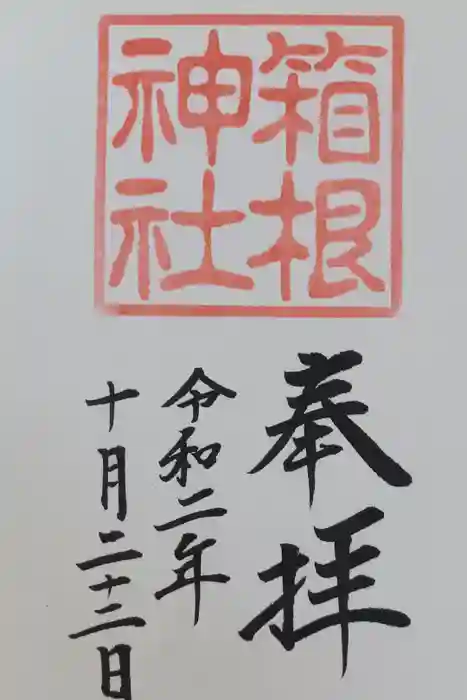 箱根
神社
奉拝
令和二年
十月二十三日